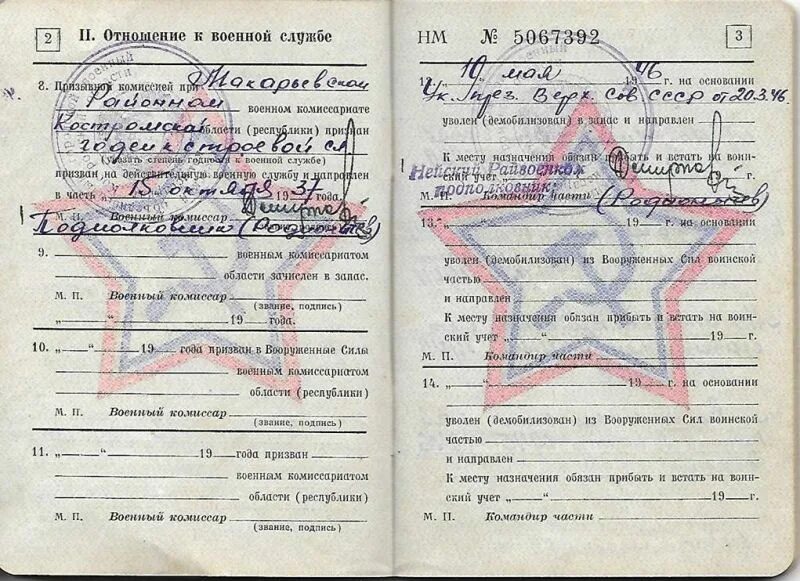 2 II. Отношение к военной службе
8. Призывной комиссией при Макарьевском
Районном военном комиссариате
Костромской области (республики) признан
годен к строевой сл
(указать степень годности к военной службе)
призван на действительную военную службу и направлен
в часть „15“ октября 1937
М. П. Военный комиссар
Подполковник (Родионычев)
9. военным комиссариатом
области зачислен в запас.
М. П. Военный комиссар
(звание, подпись)
„ “ 19 года.
10. „ “ 19 года призван в Вооруженные Силы
военным комиссариатом
области (республики)
М. П. Военный комиссар
(звание, подпись)
11. „ “ 19 года призван
военным комиссариатом
области (республики)
М. П. Военный комиссар
(звание, подпись)
НМ № 5067392 3
12. „10“ мая 1946 г. на основании
Ук. През. Верх. Сов СССР от 20.3.46.
уволен (демобилизован) в запас и направлен
К месту назначения обязан прибыть и встать на воин-
ский учет „ “ 19 г.
Нейский Райвоенком
подполковник
М. П. Командир части (Родионычев)
13. „ “ 19 г. на основании
уволен (демобилизован) из Вооруженных Сил воинской
частью
и направлен
К месту назначения обязан прибыть и встать на воин-
ский учет „ “ 19 г.
М. П. Командир части
14. „ “ 19 г. на основании
уволен (демобилизован) из Вооруженных Сил воинской
частью
и направлен
К месту назначения обязан прибыть и встать на воин-
ский учет „ “ 19 г.
М. П. Командир части